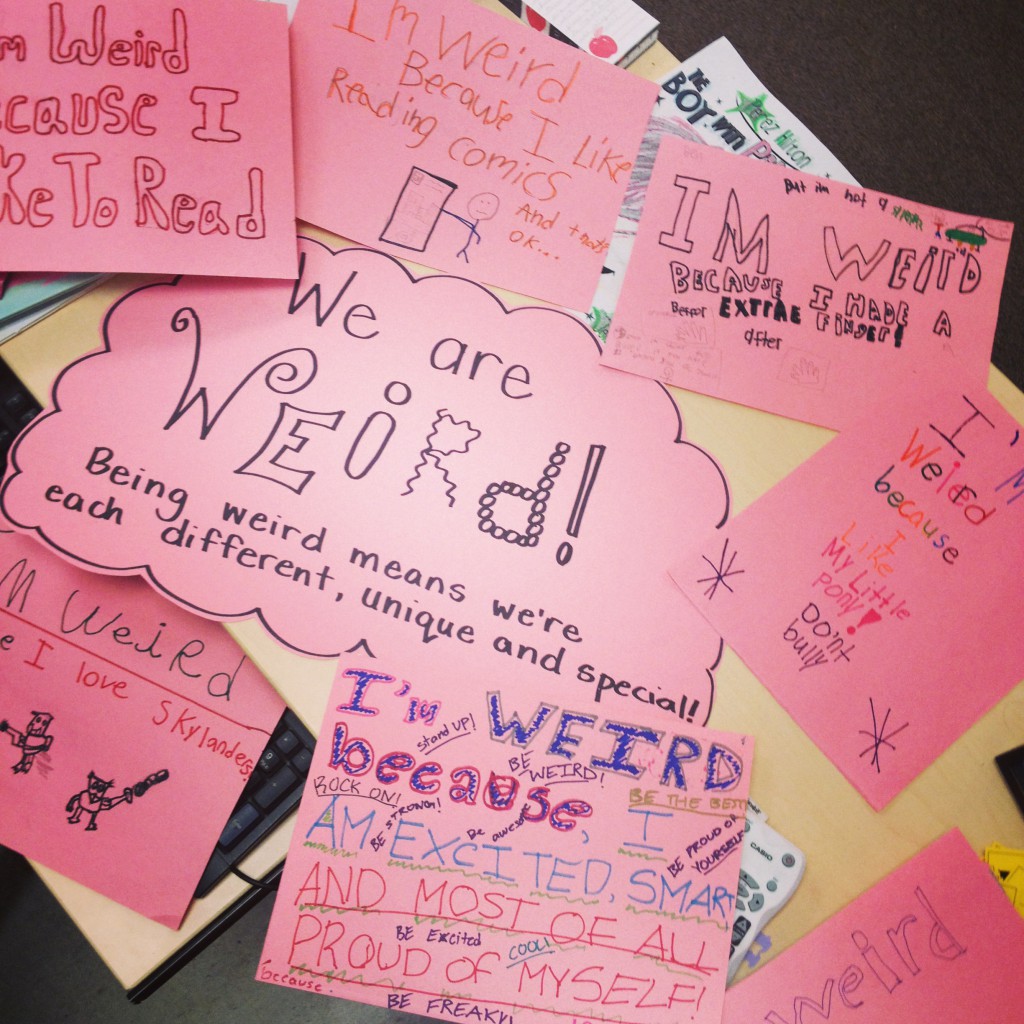 I'm Weird
Because I
Like To Read
I'm Weird
Because I Like
Reading comics
And that's
OK...
THE
BOY.
Perez Hilton
But im not a
IM WEIRD
BECAUSE I MADE A
EXTRAE FINGER!
Befor
after
We are
WEIRd!
Being weird means we're
each different, unique and special!
I'M
Weird
because
I
Like
My Little
Pony!
Don't
bully
M Weird
e I love Skylanders!
I'm WEIRD
stand UP!
because, I
BE
WEIRD!
BE THE BEST
ROCK ON!
BE STRONG!
Be awesome
BE PROUD OF
YOURSELF
AM EXCITED, SMART
AND MOST OF ALL
BE Excited
COOL!
PROUD OF MYSELF!
because.
BE FREAKY!
CASIO
weird